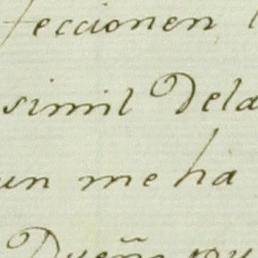 feccionen
simil Dela
un me ha
Dueño